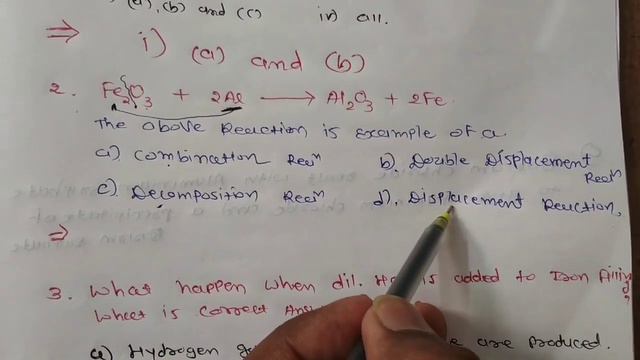 (a), (b) and (c) iv) all.
⇒ i) (a) and (b)
2. Fe2O3 + 2Al → Al2O3 + 2Fe.
The above Reaction is example of a.
a) Combination Reacn b). Double Displacement Reacn
c) Decomposition Reacn d). Displacement Reaction,
⇒
3. What happen when dil. is added to Iron filling?
What is correct
a) Hydrogen are produced.